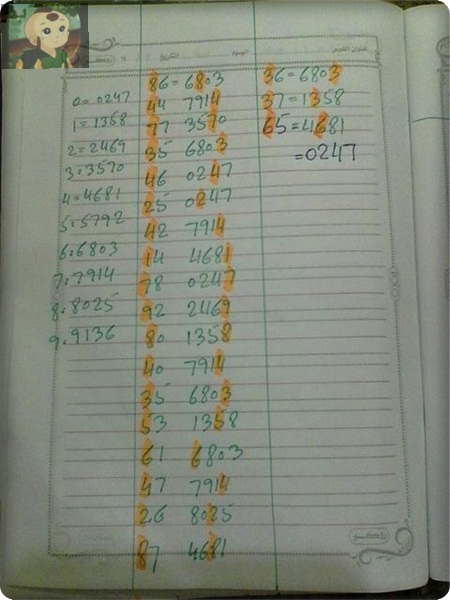 0=0247
1=1358
2=2469
3=3570
4=4681
5=5792
6=6803
7=7914
8=8025
9=9136
86=6803
44 7914
77 3570
35 6803
46 0247
25 0247
42 7914
14 4681
78 0247
92 2469
80 1358
40 7914
35 6803
53 1358
61 6803
47 7914
26 8025
87 4681
36=6803
37=1358
65=4681
=0247